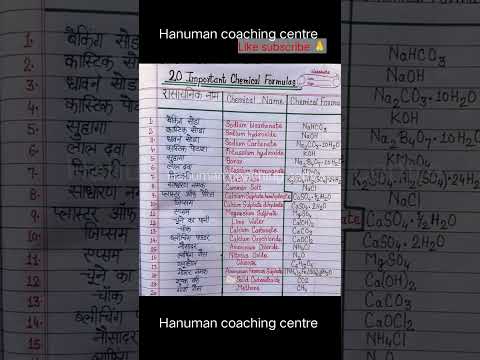 Hanuman coaching centre
Like subscribe 🙏
20 Important Chemical Formulas
रासायनिक नाम Chemical Name Chemical Formula
1. बेकिंग सोडा Sodium bicarbonate NaHCO₃
2. कास्टिक सोडा Sodium hydroxide NaOH
3. धावन सोडा Sodium Carbonate Na₂CO₃·10H₂O
4. कास्टिक पोटाश Potassium hydroxide KOH
5. सुहागा Borax Na₂B₄O₇·10H₂O
6. लाल दवा Potassium permanganate KMnO₄
7. फिटकरी
8. साधारण नमक Common Salt NaCl
9. प्लास्टर ऑफ पेरिस Calcium Sulphate hemihydrate CaSO₄·½H₂O
10. जिप्सम Calcium Sulphate dihydrate CaSO₄·2H₂O
11. एप्सम Magnesium Sulphate MgSO₄
12. चूने का पानी Lime Water Ca(OH)₂
13. चॉक Calcium Carbonate CaCO₃
14. ब्लीचिंग पाउडर Calcium Oxychloride CaOCl₂
15. नौसादर Ammonium Chloride NH₄Cl
16. लाफिंग गैस Nitrous Oxide N₂O
17. Glucose C₆H₁₂O₆
18. मोहर नमक Ammonium Ferrous Sulphate
19. Solid CO2
20. Methane CH₄
Hanuman coaching centre